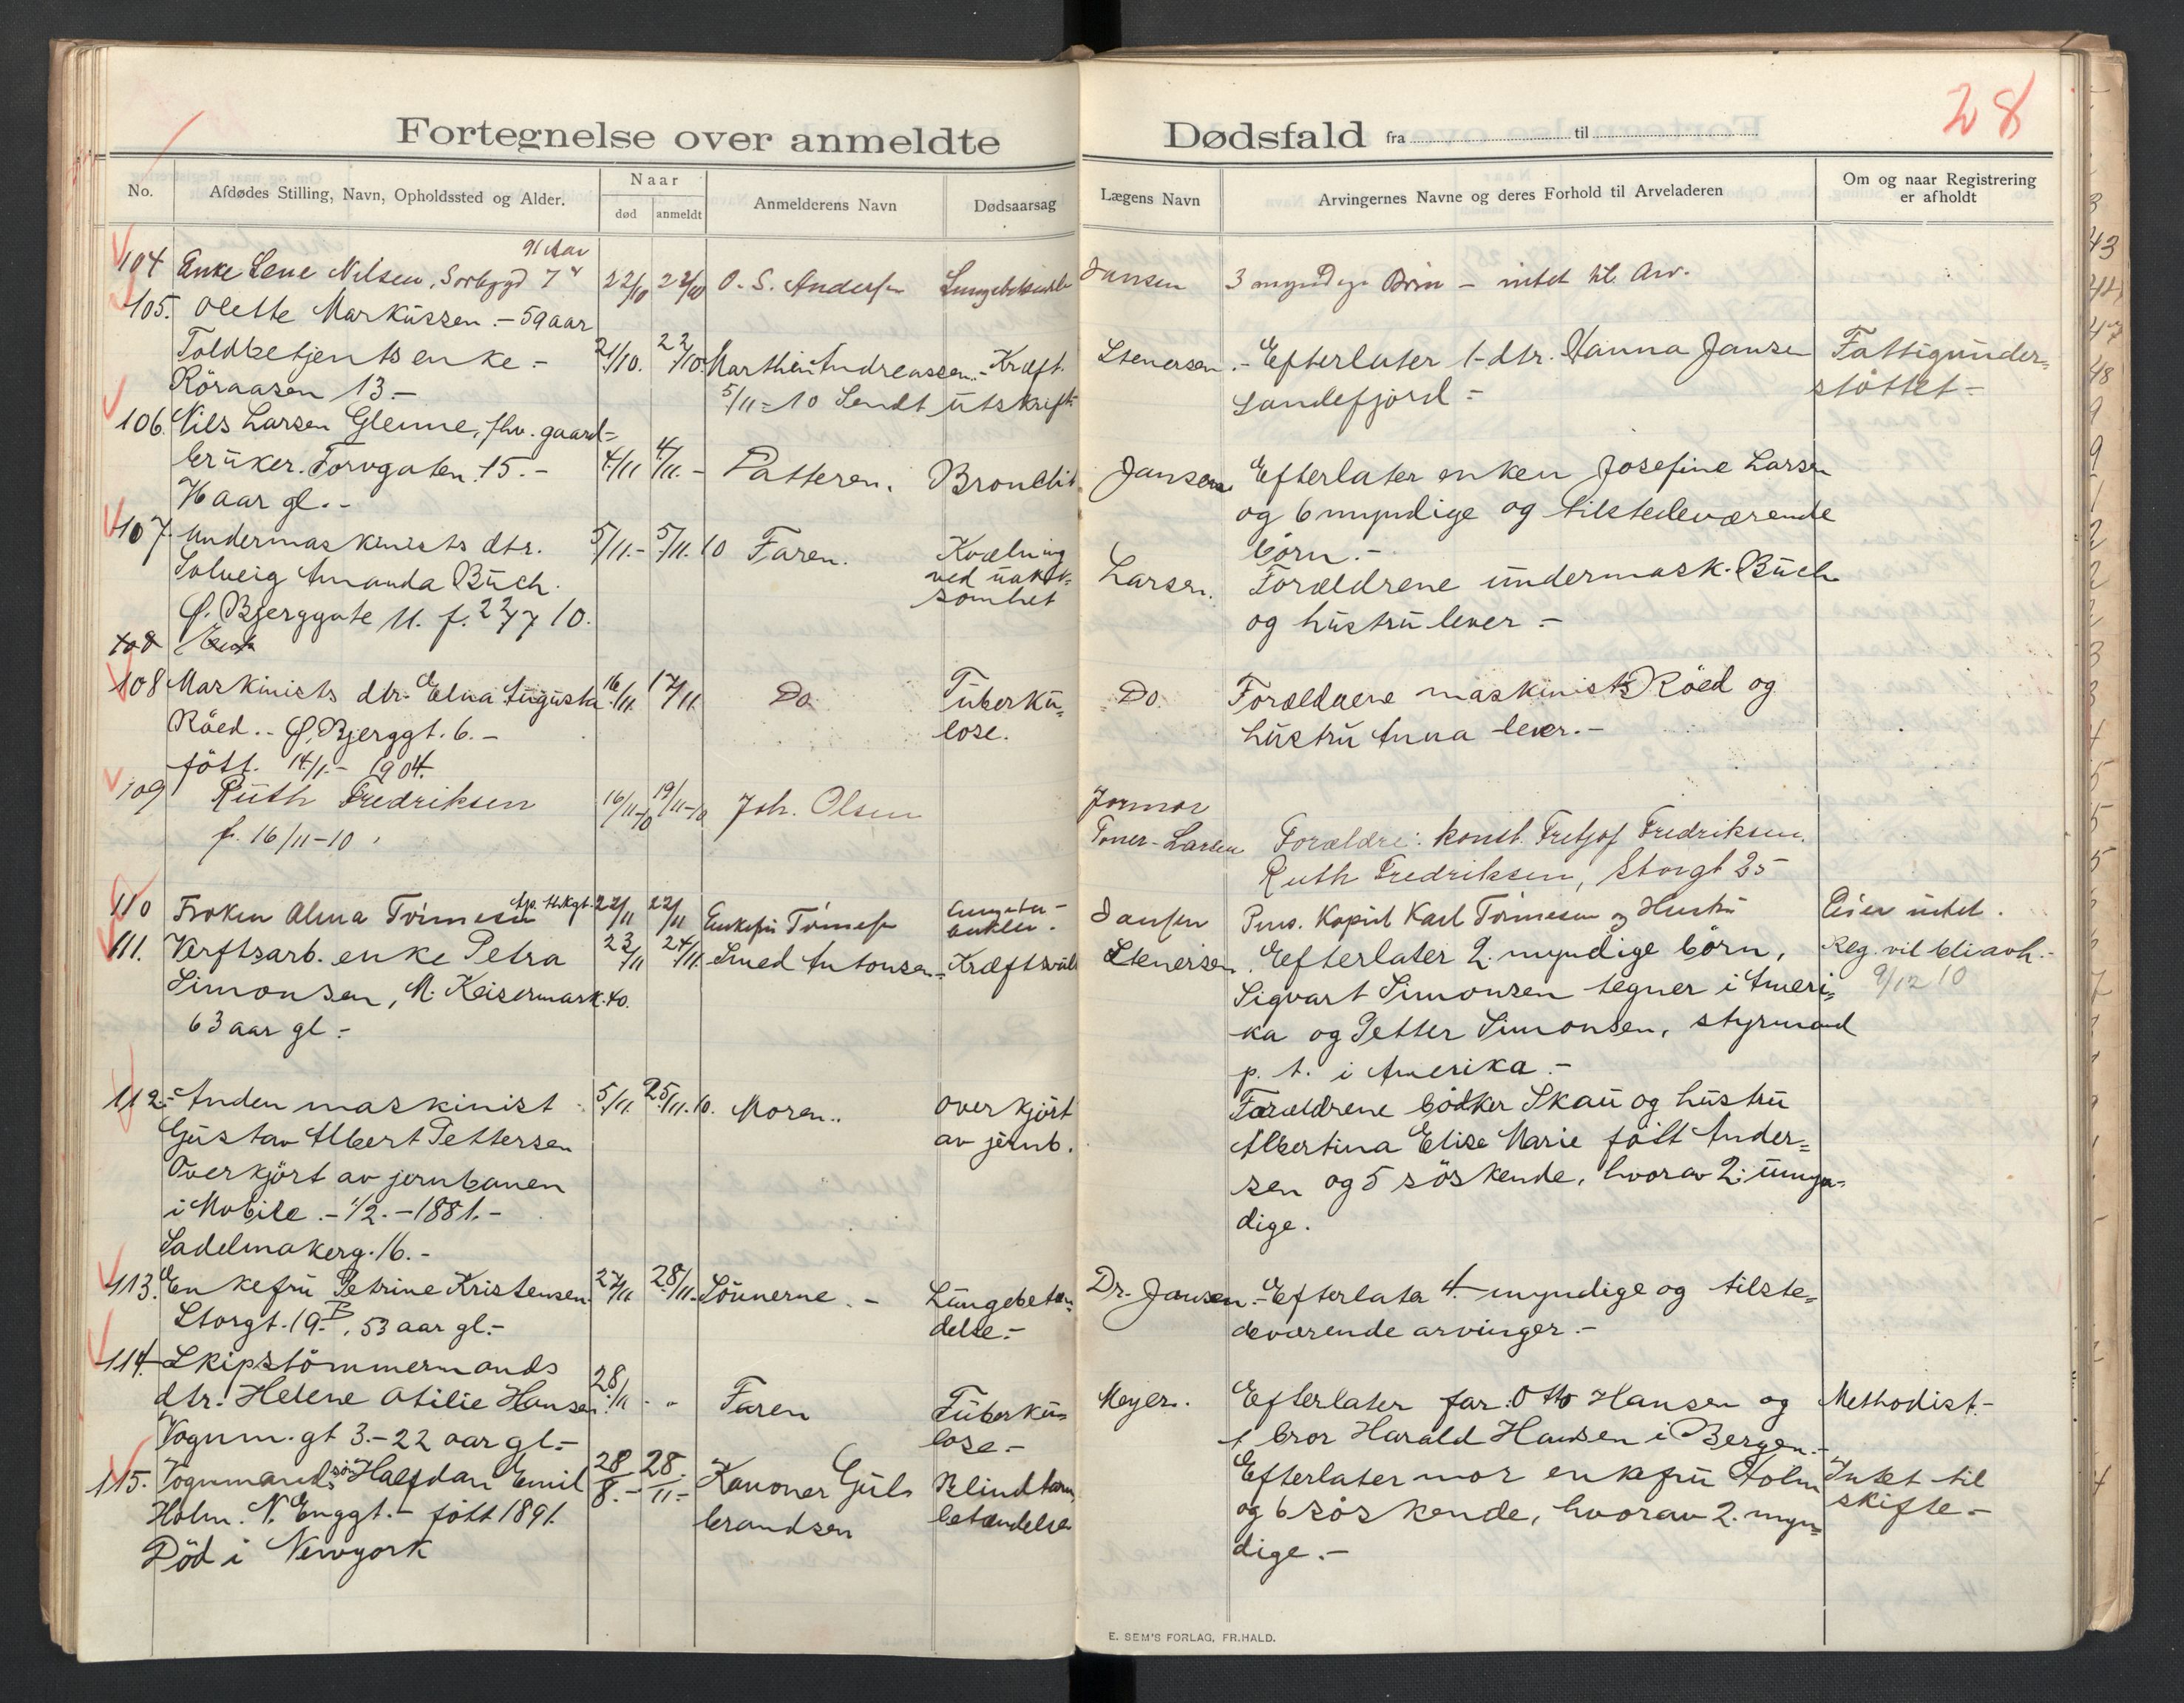 28
Fortegnelse over anmeldte Dødsfald fra til
No.
Afdødes Stilling, Navn, Opholdssted og Alder.
Naar
død
anmeldt
Anmelderens Navn
Dødsaarsag
Lægens Navn
Arvingernes Navne og deres Forhold til Arveladeren
Om og naar Registrering
er afholdt
91 Aar
104 Enke Lene Nilsen, Sorbygd 7 22/10 22/10 O. S. Andersen Jansen 3 myndige Börn – intet til Arv.
105. Olette Markussen. – 59 aar
Toldbetjents enke – 21/10. 22/10. Marthin Andreassen. – Kræft. Stenersen. – Efterlater 1 dtr. Hanna Jansen Fattigunder=
Röraasen 13. – 5/11 = 10 Sendt utskrift Sandefjord – støttet –
106. Nils Larsen Glenne, fhv. gaard=
bruker. Torvgaten 15. – 4/11 4/11. – Datteren. Bronchit Jansen Efterlater enken Josefine Larsen
76 aar gl. – og 6 myndige og tilstedeværende
börn. –
107. Undermaskinists dtr. 5/11. – 5/11. 10 Faren. Kvælning
Solveig Amanda Buch. ved uagt= Larsen. Forældrene undermask. Buch
Ø. Bjerggate 11. f. 22/7 10. somhet og hustru lever –
108 Enk
108 Maskinists dtr. Elna Augusta 16/11. 17/11 Do Tuberku= Do. Forældrene maskinist Röed og
Röed. – Ø. Bjerggt. 6. – lose. hustru Anna lever. –
född. 14/1. – 1904.
109 Ruth Fredriksen 16/11–10 19/11–10 Joh. Olsen Jormor
f. 16/11–10 Toner-Larsen Forældre: konst. Fretjof Fredriksen.
Ruth Fredriksen, Storgt 25
110 Frøken Alma Tömesen 22/11 22/11 Enkefru Tömesen Jansen Pens. Kapt Karl Tömesen og Hustru Eier intet.
111. Verftsarb. enke Petra 23/11 24/11. Smed Antonsen – Kræftsvul Stenersen. Efterlater 2 myndige börn, Reg. vil bli avh. –
Simonsen, M. Keisermark. 40. Sigvart Simonsen tegner i Ameri= 9/12 10
63 aar gl – ka og Petter Simonsen, styrmand
p. t. i Amerika. –
112. – Anden maskinist 5/11. 25/11. 10. Moren.. overkjört Forældrene bödker Skau og hustru
Gustav Albert Pettersen av jernb. Albertina Elise Marie född Ander=
Overkjört av jernbanen sen og 5 söskende, hvorav 2 umyn=
i Mobile. – 1/2. – 1881. – dige.
Sadelmakerg. 16. –
113. Enkefru Petrine Kristensen 27/11 28/11. Sönnerne. – Lungebetæn= Dr. Jansen. – Efterlater 4 myndige og tilste=
Storgt. 19. B, 53 aar gl. – delse. – deværende arvinger. –
114. Skipstömmermands
dtr. Helene Otilie Hansen. 28/11 – " Faren Tuberku= Meyer. Efterlater far: Otto Hansen og Methodist. –
Vognm. gt 3. – 22 aar gl. – lose. – 1 bror Harald Hansen i Bergen. –
115. Vognmands sön Halfdan Emil 28/8. – 28/11 – Kanoner Gul= Blindtarm Efterlater mor enkefru Holm Intet til
Holm. N. Enggt. – född 1891. brandsen betændelse og 6 söskende, hvorav 2 myn= skifte. –
Död i Newyork dige. –
E. SEM'S FORLAG, FR.HALD.